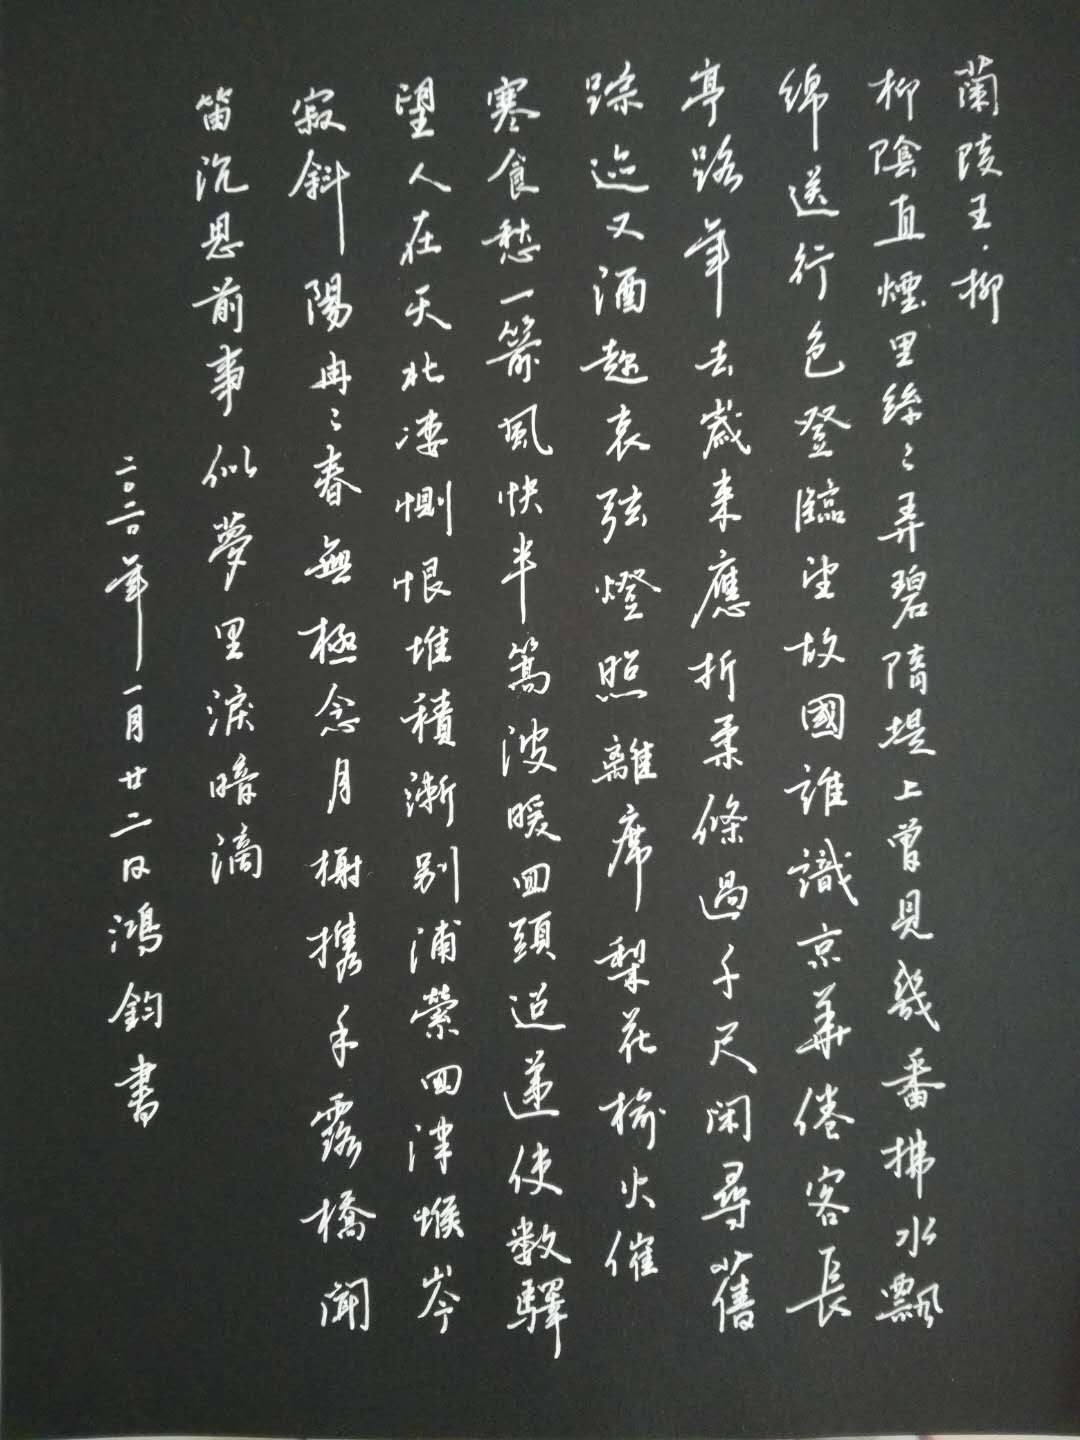 蘭陵王·柳
柳陰直煙里絲〻弄碧隋堤上曾見幾番拂水飄
綿送行色登臨望故國誰識京華倦客長
亭路年去歲来應折柔條過千尺闲尋舊
踪迹又酒趁哀弦燈照離席梨花榆火催
寒食愁一箭風快半篙波暖回頭迢遞便数驛
望人在天北凄惻恨堆積漸别浦縈回津堠岑
寂斜陽冉〻春無極念月榭携手露橋聞
笛沉思前事似夢里淚暗滴
二〇二〇年一月廿二日鴻鈞書